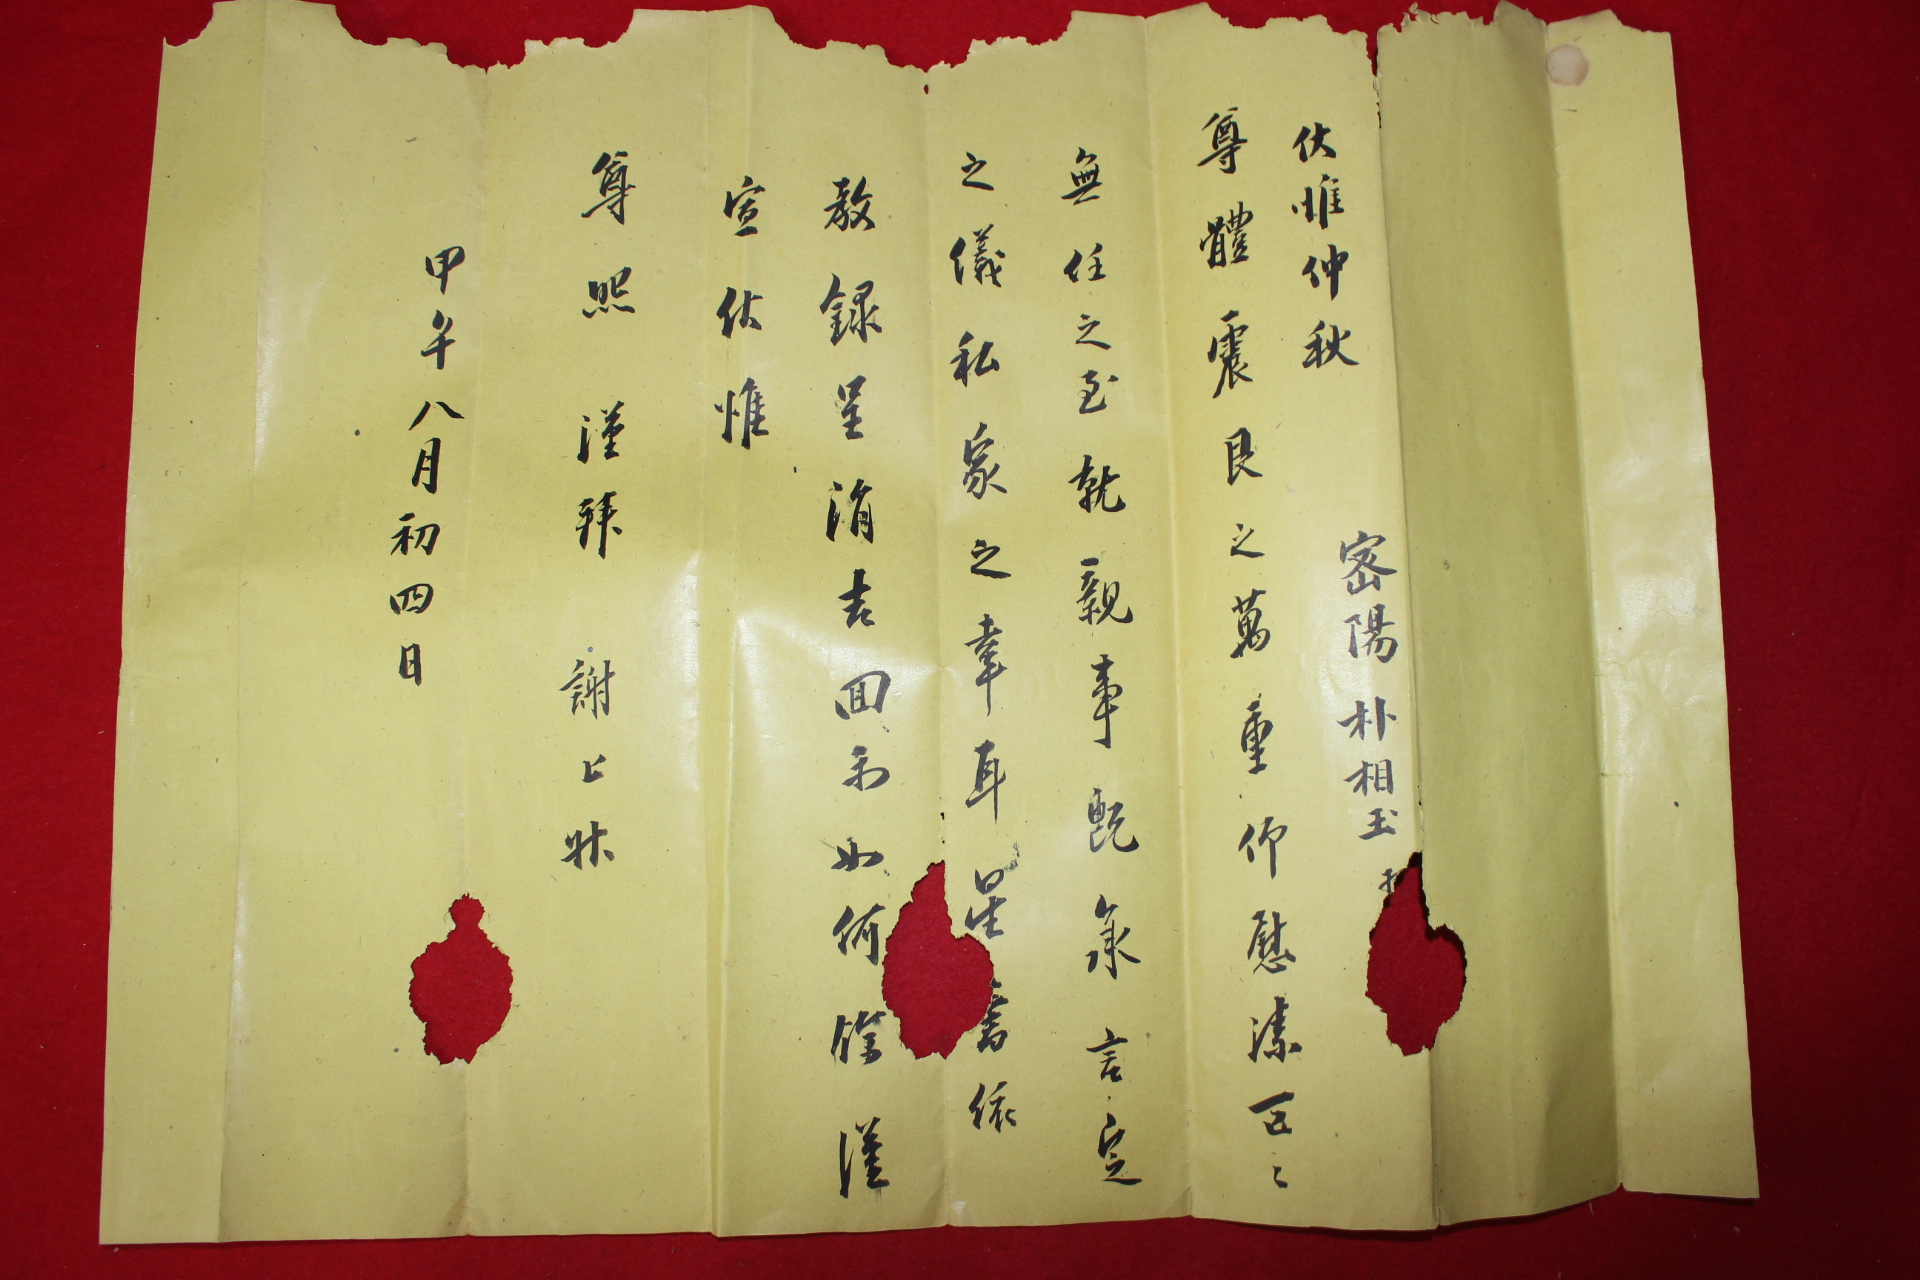 密陽朴相玉
伏惟仲秋
尊體震艮之萬重仰慰溱區〻
無任之至就親事旣承言定
之儀私家之幸耳星書依
教錄呈涓吉回示如何餘謹
宣伏惟
尊照 謹拜 謝上狀
甲午八月初四日